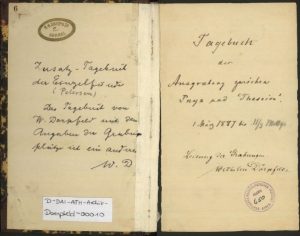 6
Zusatz-Tagebuch
der Einzelfunde
(Petersen)
Das Tagebuch von
W. Dörpfeld mit den
Angaben der Grabungs-
plätze ist ein anderes
W. D
D-DAI-ATH-Archiv-
Doerpfeld-00010
Tagebuch
der
Ausgrabung zwischen
Pnyx und "Theseion".
1 März 1897 bis
Leitung der Grabungen
Wilhelm Dörpfeld.